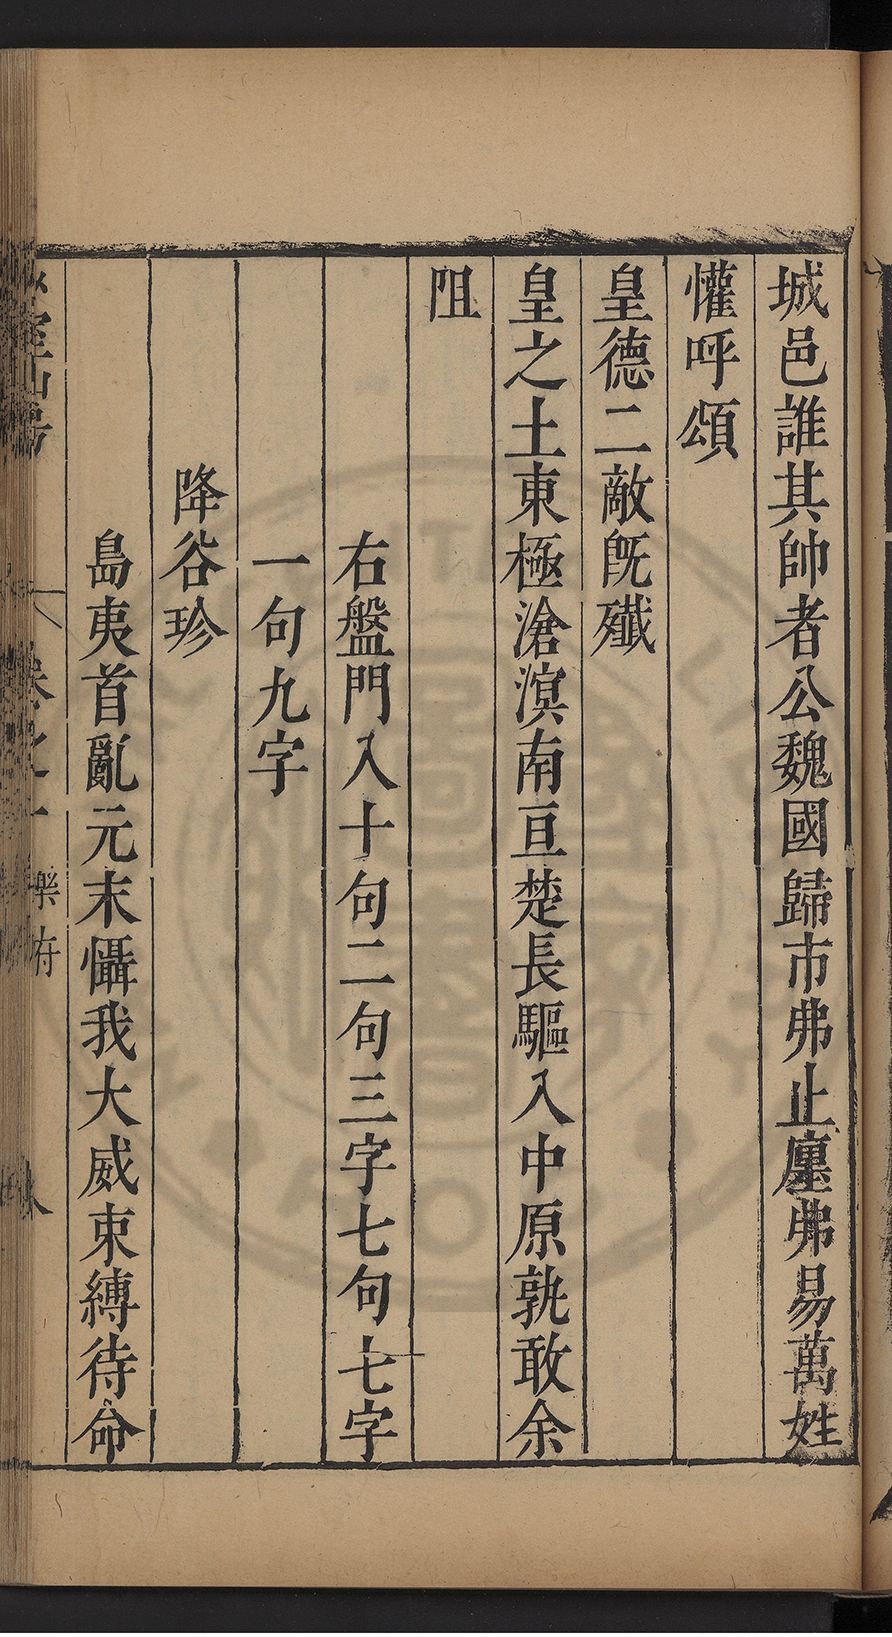 城邑誰其帥者公魏國歸市弗止廛弗易萬姓
懽呼頌
皇德二敵既殲
皇之土東極滄溟南亘楚長驅入中原孰敢余
阻
右盤門入十句二句三字七句七字
一句九字
降谷珍
島夷首亂元末懾我大威束縛待命
卷之一
樂府